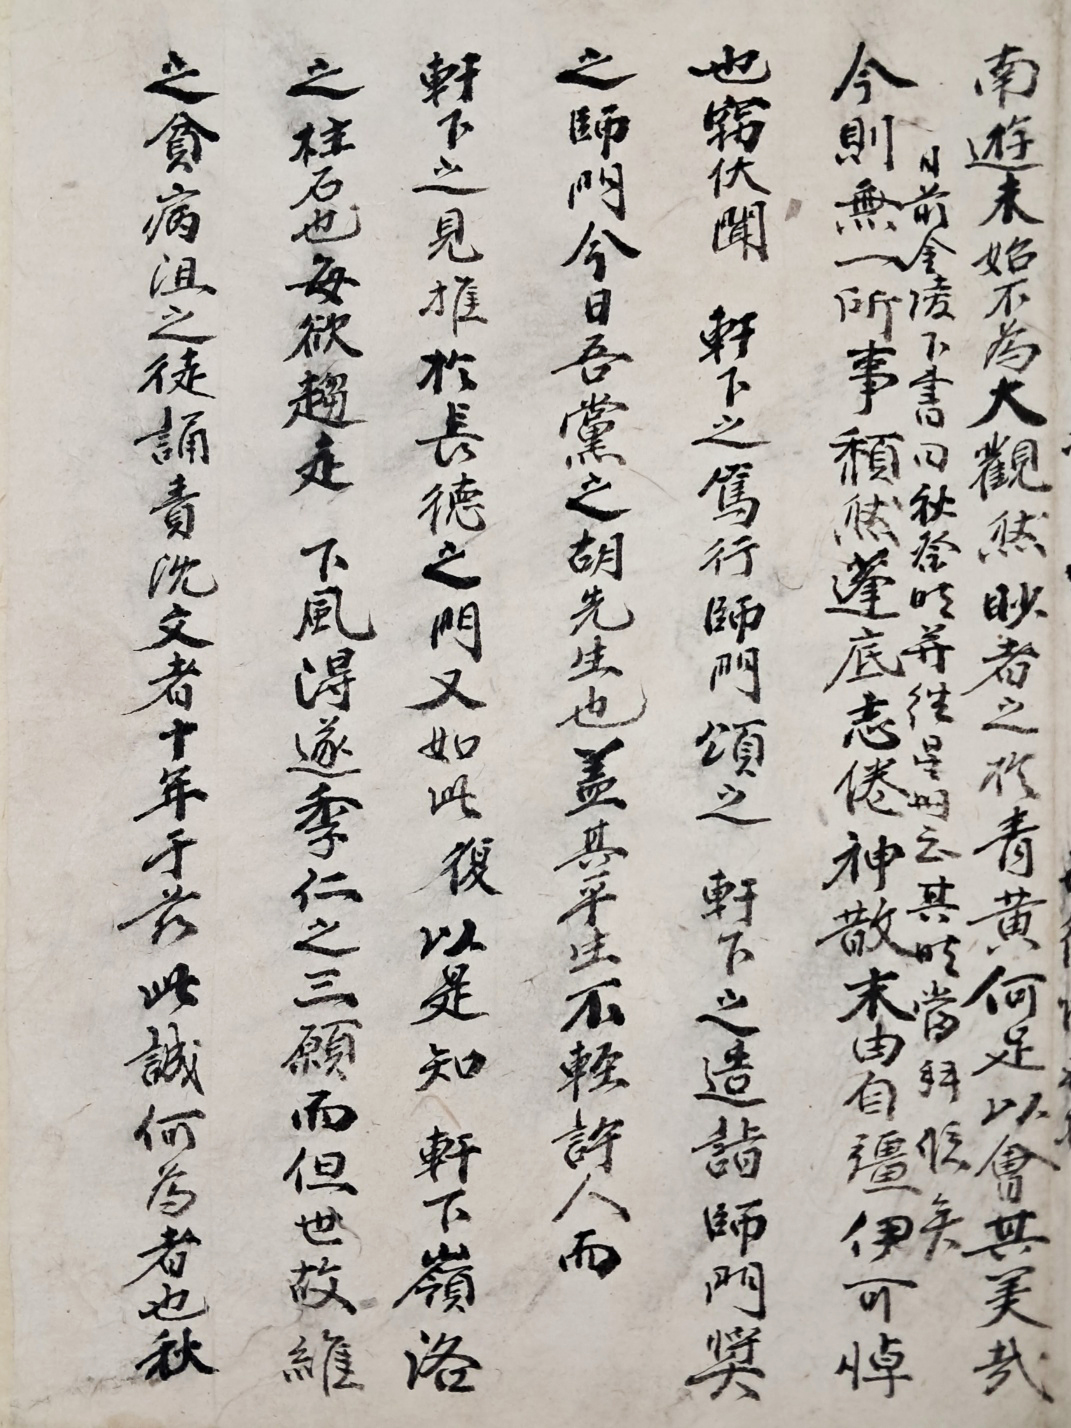 南遊未始不爲大觀然眇者之於青黃何足以會其美哉
日前金陵下書曰秋冬時幷往是國云其時當拜候矣
今則無一所事頹然蓬底志倦神散末由自彊伊可悼
也竊伏聞 軒下之篤行師門頌之 軒下之造詣師門奬
之師門今日吾黨之胡先生也盖其平生不輕許人而
軒下之見推於長德之門又如此復以是知 軒下嶺洛
之柱石也每欲趨走 下風得遂季仁之三願而但世故維
之貧病沮之徒誦責沈文者十年于玆此誠何爲者也秋